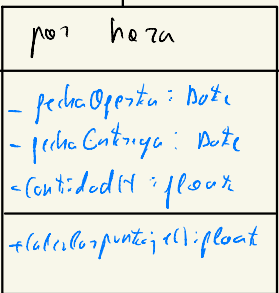 por hora
- fechaOferta : Date
- fechaEntrega : Date
- CantidadH : float
+ calcularpuntaje() : float